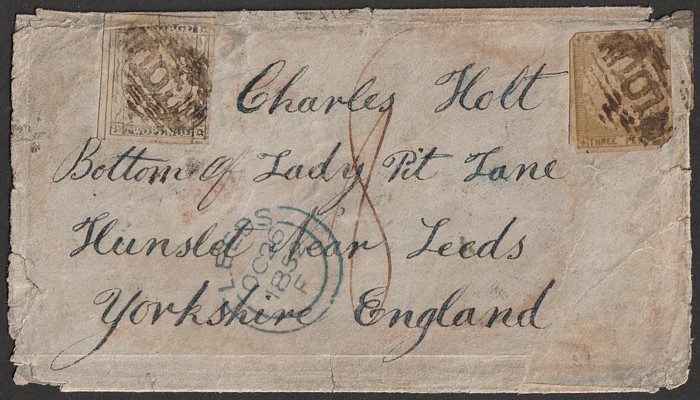 Charles Holt
Bottom of Lady Pit Lane
Hunslet Near Leeds
Yorkshire England
8
TWO PENCE
THREE PE
LEEDS
OC 26
1852
F